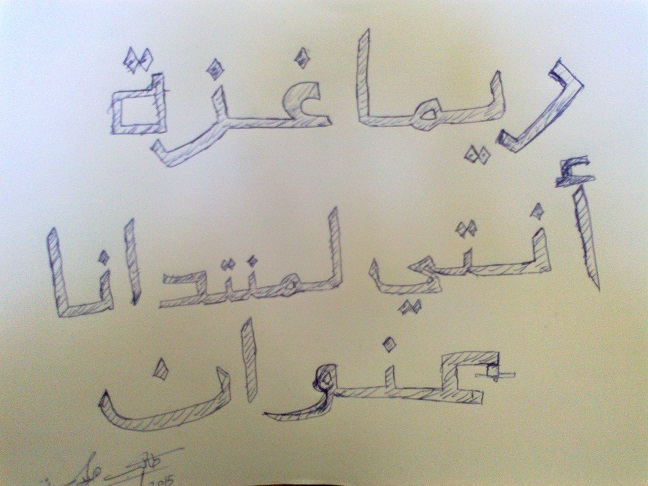 ريما غزة
أنتي لمنتدانا
عنوان
2015